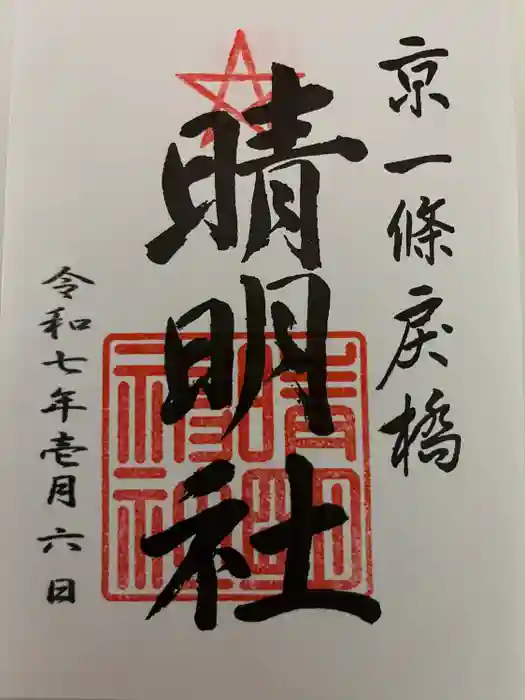 京一條戻橋
晴明社
令和七年壱月六日